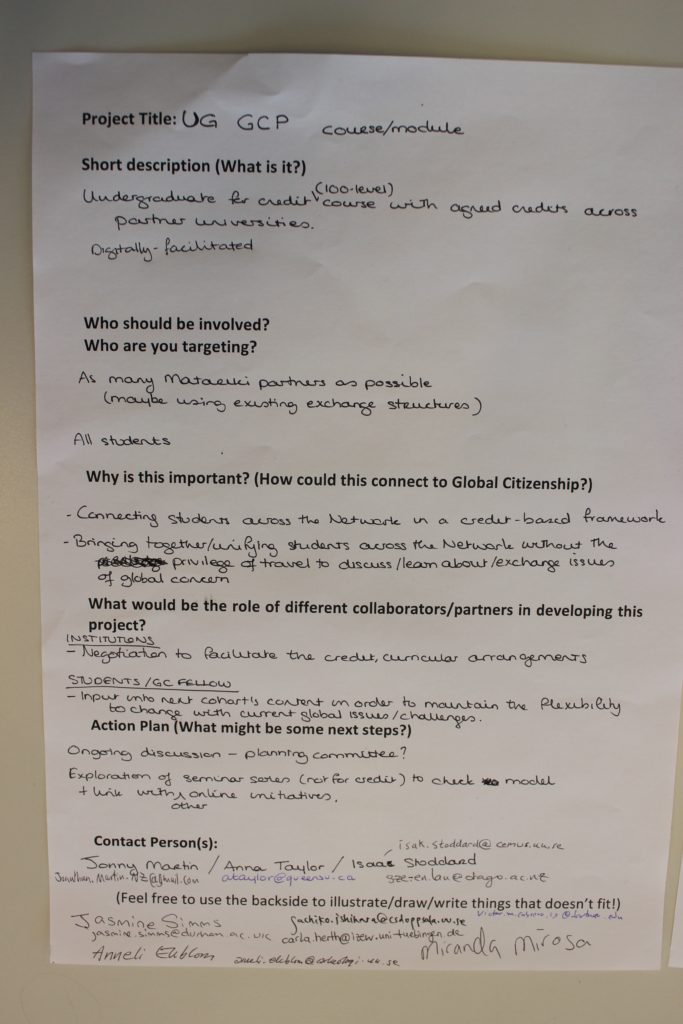 Project Title: UG GCP course/module
Short description (What is it?)
Undergraduate for credit (100-level) course with agreed credits across
partner universities.
Digitally-facilitated
Who should be involved?
Who are you targeting?
As many Matariki partners as possible
(maybe using existing exchange structures)
All students
Why is this important? (How could this connect to Global Citizenship?)
- Connecting students across the Network in a credit-based framework
- Bringing together/unifying students across the Network without the
privilege of travel to discuss/learn about/exchange issues
of global concern
What would be the role of different collaborators/partners in developing this
project?
INSTITUTIONS
- Negotiation to facilitate the credit, curricular arrangements
STUDENTS/GC FELLOW
- Input into next cohort's content in order to maintain the flexibility
to change with current global issues/challenges.
Action Plan (What might be some next steps?)
Ongoing discussion - planning committee?
Exploration of seminar series (not for credit) to check model
+ link with other online initiatives.
Contact Person(s):
isak.stoddard@cemus.uu.se
Jonny Martin / Anna Taylor / Isaac Stoddard
Jonathan.Martin.NZ@gmail.com ataylor@queensu.ca sze-en.lau@otago.ac.nz
(Feel free to use the backside to illustrate/draw/write things that doesn't fit!)
Jasmine Simms
jasmine.simms@durham.ac.uk carla.herth@izew.uni-tuebingen.de
Miranda Mirosa
Anneli Ekblom